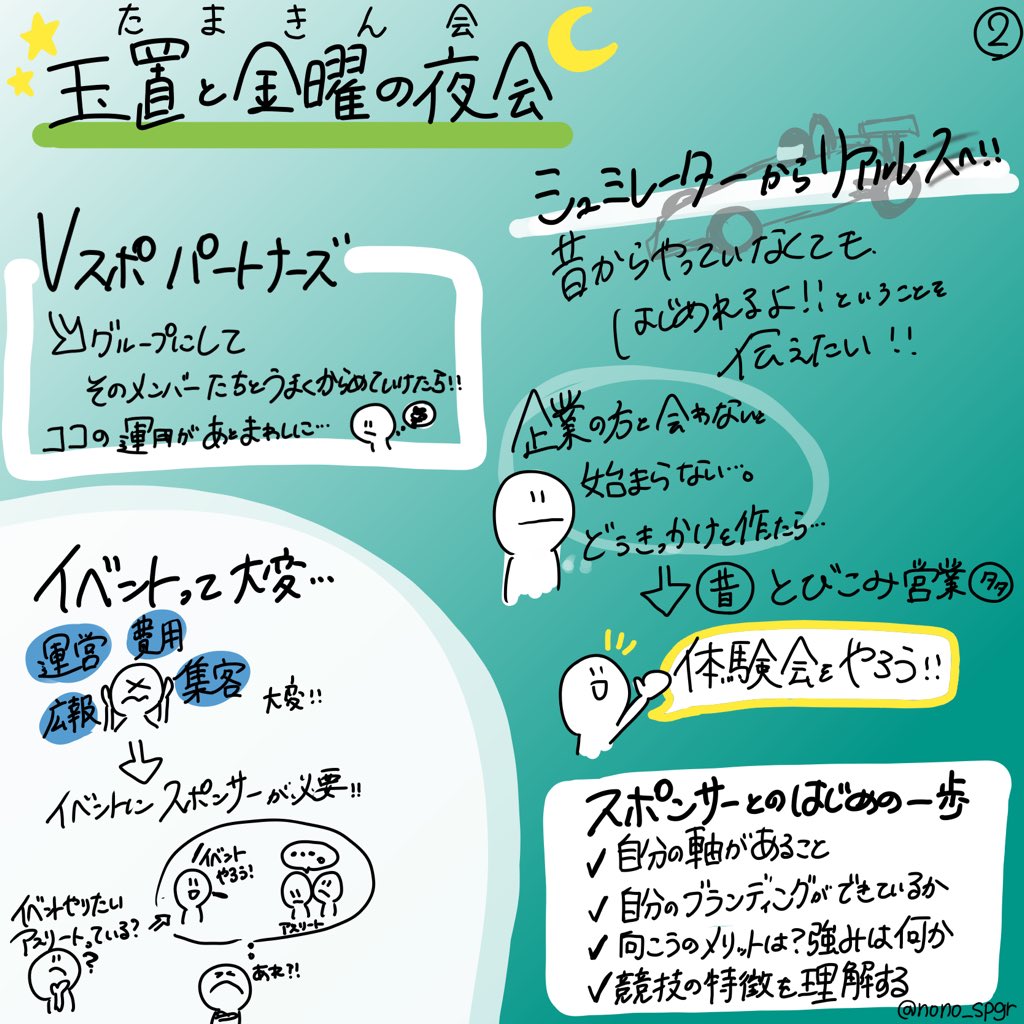 たまきん会
玉置と金曜の夜会
②
Vスポパートナーズ
グループにして
そのメンバーたちとうまくからめていけたら!!
ココの運用があとまわしに…
シュミレーターからリアルレースへ!!
昔からやっていなくても、
はじめれるよ!!ということを
伝えたい!!
企業の方と会わないと
始まらない…。
どうきっかけを作たら…
昔 とびこみ営業 多
体験会をやろう!!
イベントって大変…
運営
費用
広報
集客
大変!!
イベントにスポンサーが必要!!
イベント
やろう!
アスリート
イベントやりたい
アスリートっている?
?
あれ?!
スポンサーとのはじめの一歩
✓自分の軸があること
✓自分のブランディングができているか
✓向こうのメリットは?強みは何か
✓競技の特徴を理解する
@nono_spgr